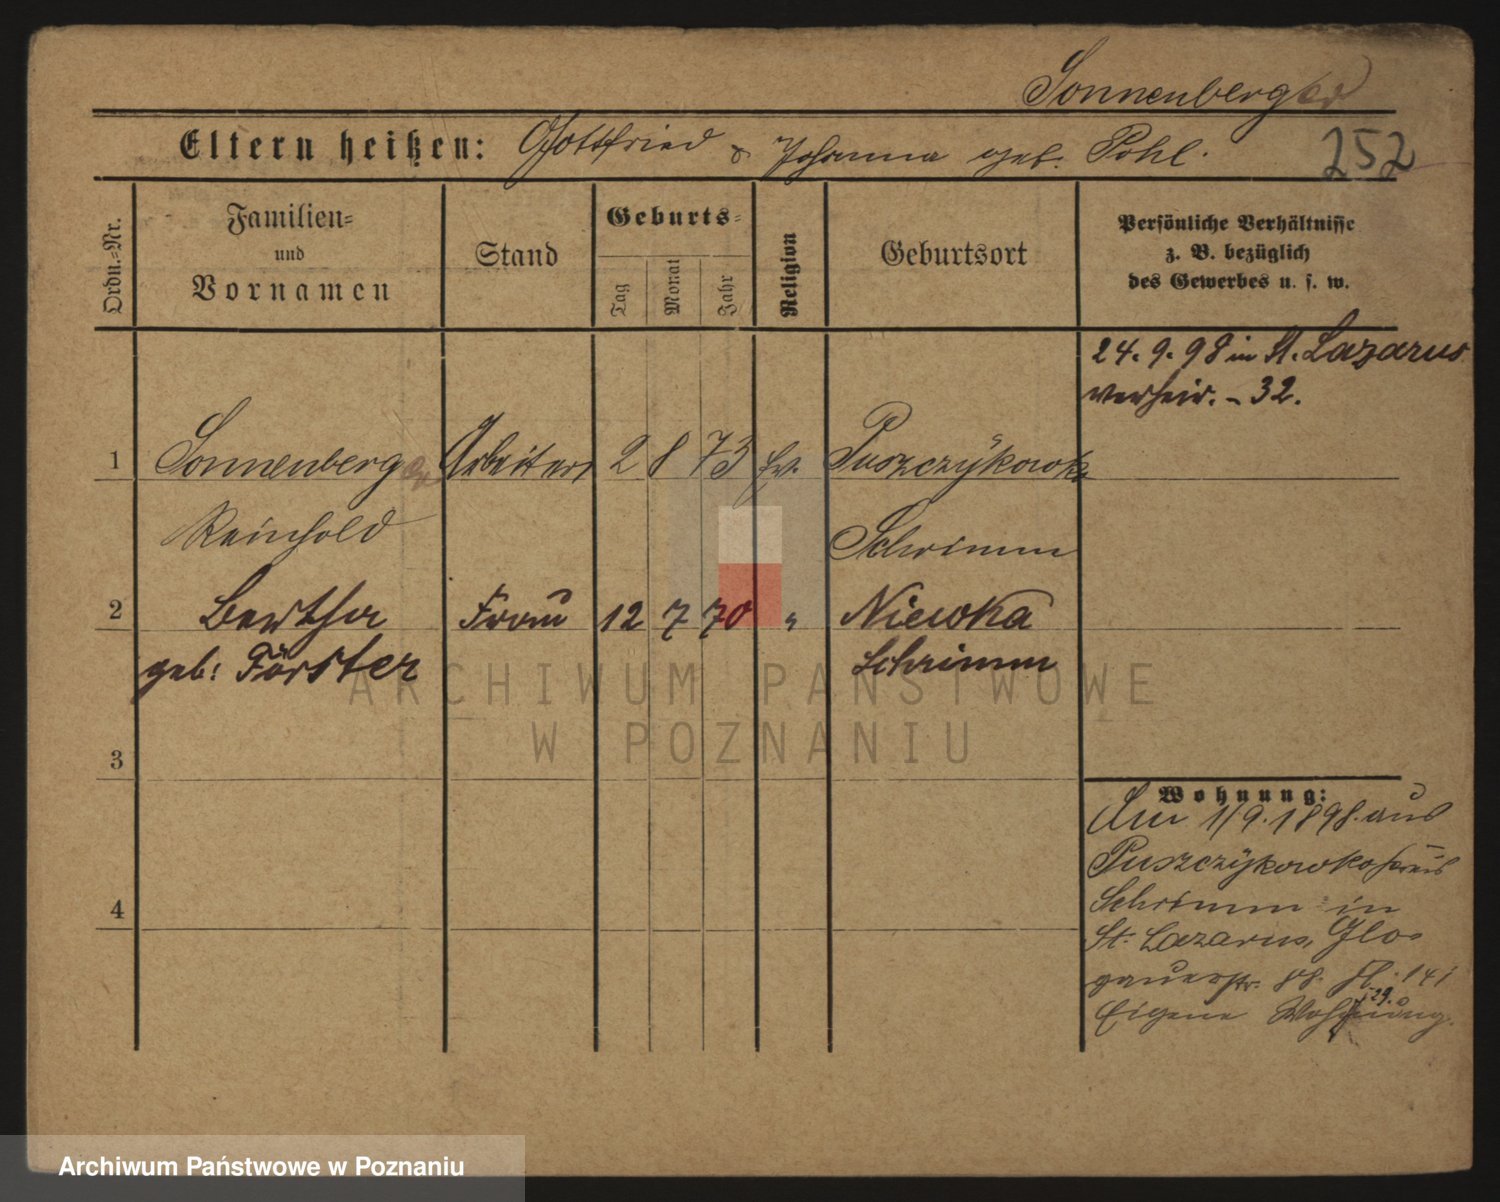 Sonnenberger
Eltern heißen: Gottfried & Johanna geb. Pohl.
252
Ordn.-Nr.
Familien-
und
Vornamen
Stand
Geburts-
Tag
Monat
Jahr
Religion
Geburtsort
Persönliche Verhältnisse
z. B. bezüglich
des Gewerbes u. s. w.
24. 9. 98 in St. Lazarus
verheir. - 32.
1 Sonnenberger Arbeiter 2 8 73 ev. Puszczykowko
Reinhold Schrimm
2 Bertha Frau 12 7 70 " Niewka
geb: Förster Schrimm
3
4
Wohnung:
Am 1/9. 1898. aus
Puszczykowko Kreis
Schrimm in
St. Lazarus, Glo-
gauerstr. 88.
Eigene Wohnung.
ARCHIWUM PAŃSTWOWE
W POZNANIU
Archiwum Państwowe w Poznaniu